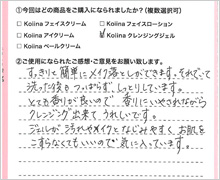 ①今回はどの商品をご購入になられましたか?(複数選択可)
□Koiina フェイスクリーム □Koiina フェイスローション
□Koiina アイクリーム ☑Koiina クレンジングジェル
□Koiina ベールクリーム
②ご使用になられたご感想・ご意見をお願い致します。
すっきりと簡単にメイク落としができます。それでいて
洗った後日つっぱらず、しっとりしています。
とても香りが良いので 香りにいやされながら
クレンジング出来てうれしいです。
ジェルが汚れやメイクとなじみやすく、お肌を
こすらなくてもいいので気に入っています。